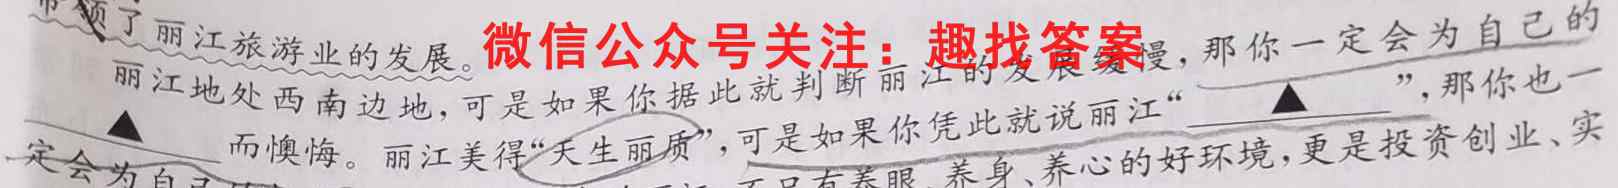 带领了丽江旅游业的发展。
微信公众号关注：趣找答案
丽江地处西南边地，可是如果你据此就判断丽江的发展缓慢，那你一定会为自己的
▲而懊悔。丽江美得“天生丽质”，可是如果你凭此就说丽江“▲”，那你也一
定会为自己 不只有养眼、养身、养心的好环境，更是投资创业、实